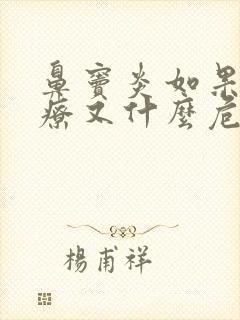 鼻竇炎如果
療又什麼危
楊甫祥